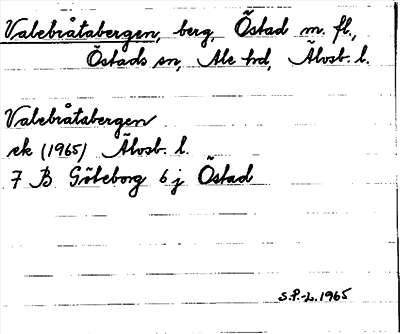 Valebråtabergen, berg, Östad m. fl.,
Östads sn, Ale hd, Älvsb. l.
Valebråtabergen
ek (1965) Älvsb. l.
7 B Göteborg 6 j Östad
S.P.-L. 1965